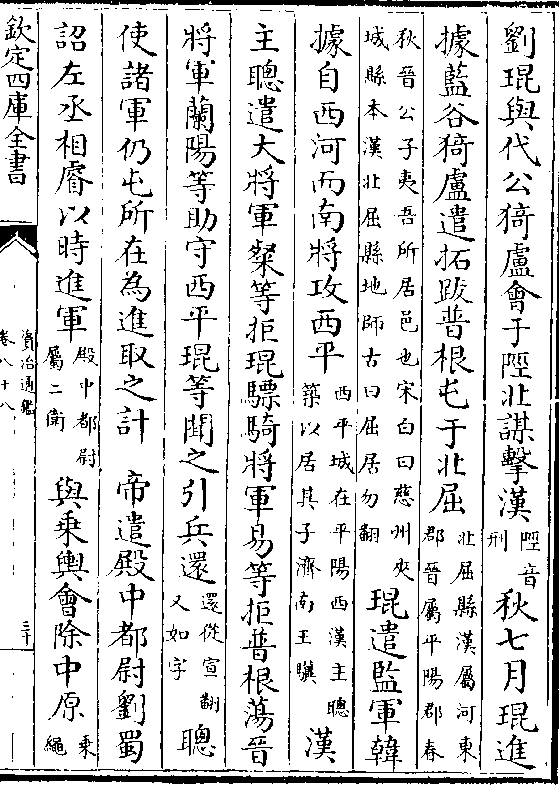 劉琨與代公猗盧會于陘北謀擊漢陘音刑秋七月琨進
據藍谷猗盧遣拓跋普根屯于北屈北屈縣漢屬河東郡晉屬平陽郡春
秋晉公子夷吾所居邑也宋白曰慈州夾城縣本漢北屈縣地師古曰屈居勿翻琨遣監軍韓
據自西河而南將攻西平西平城在平陽西漢主聰築以居其子濟南王驥漢
主聰遣大將軍粲等拒琨驃騎將軍易等拒普根蕩晉
將軍蘭陽等助守西平琨等聞之引兵還還從宣翻又如字聰
使諸軍仍屯所在為進取之計 帝遣殿中都尉劉蜀
詔左丞相睿以時進軍殿中都尉屬二衛與乘輿會除中原乘繩
欽定四庫全書
資治通鑑
卷八十八
三十